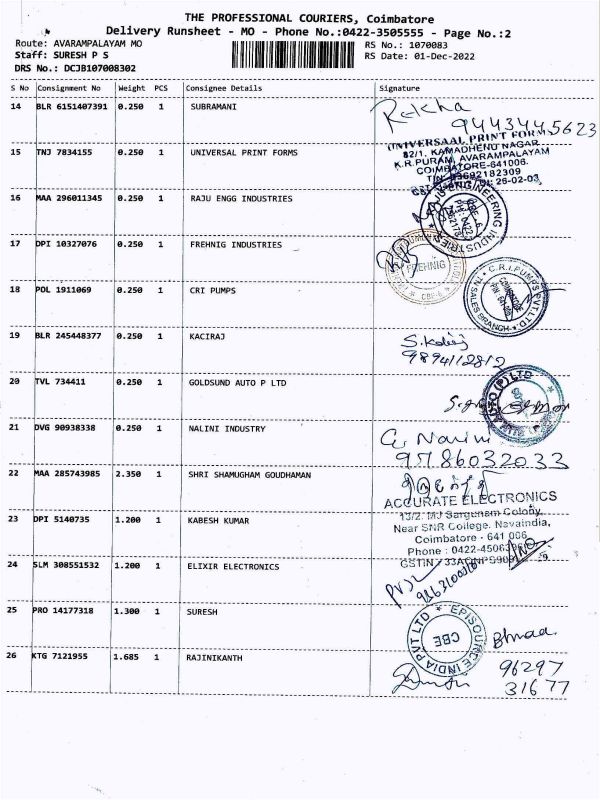 THE PROFESSIONAL COURIERS, Coimbatore
Delivery Runsheet - MO - Phone No.:0422-3505555 - Page No.:2
Route: AVARAMPALAYAM MO RS No.: 1070083
Staff: SURESH P S RS Date: 01-Dec-2022
DRS No.: DCJB107008302
S No Consignment No Weight PCS Consignee Details Signature
14 BLR 6151407391 0.250 1 SUBRAMANI Rekha
9443445623
15 TNJ 7834155 0.250 1 UNIVERSAL PRINT FORMS UNIVERSAAL PRINT FORMS
82/1, KAMADHENU NAGAR
K.R.PURAM, AVARAMPALAYAM
COIMBATORE-641006.
16 MAA 296011345 0.250 1 RAJU ENGG INDUSTRIES RAJU ENGINEERING INDUSTRIES
17 DPI 10327076 0.250 1 FREHNIG INDUSTRIES FREHNIG
CBE-6
18 POL 1911069 0.250 1 CRI PUMPS C.R.I.PUMPS PVT LTD.
SALES BRANCH
19 BLR 245448377 0.250 1 KACIRAJ
9894112812
20 TVL 734411 0.250 1 GOLDSUND AUTO P LTD AUTO (P) LTD
21 DVG 90938338 0.250 1 NALINI INDUSTRY G. Nalini
9786032033
22 MAA 285743985 2.350 1 SHRI SHAMUGHAM GOUDHAMAN
ACCURATE ELECTRONICS
23 DPI 5140735 1.200 1 KABESH KUMAR 13/2, MJ Sargunam Colony,
Near SNR College, Navaindia,
Coimbatore - 641 006
Phone : 0422-4506
24 SLM 308551532 1.200 1 ELIXIR ELECTRONICS
25 PRO 14177318 1.300 1 SURESH EPISOURCE INDIA PVT LTD
CBE
26 KTG 7121955 1.685 1 RAJINIKANTH 96297
31677